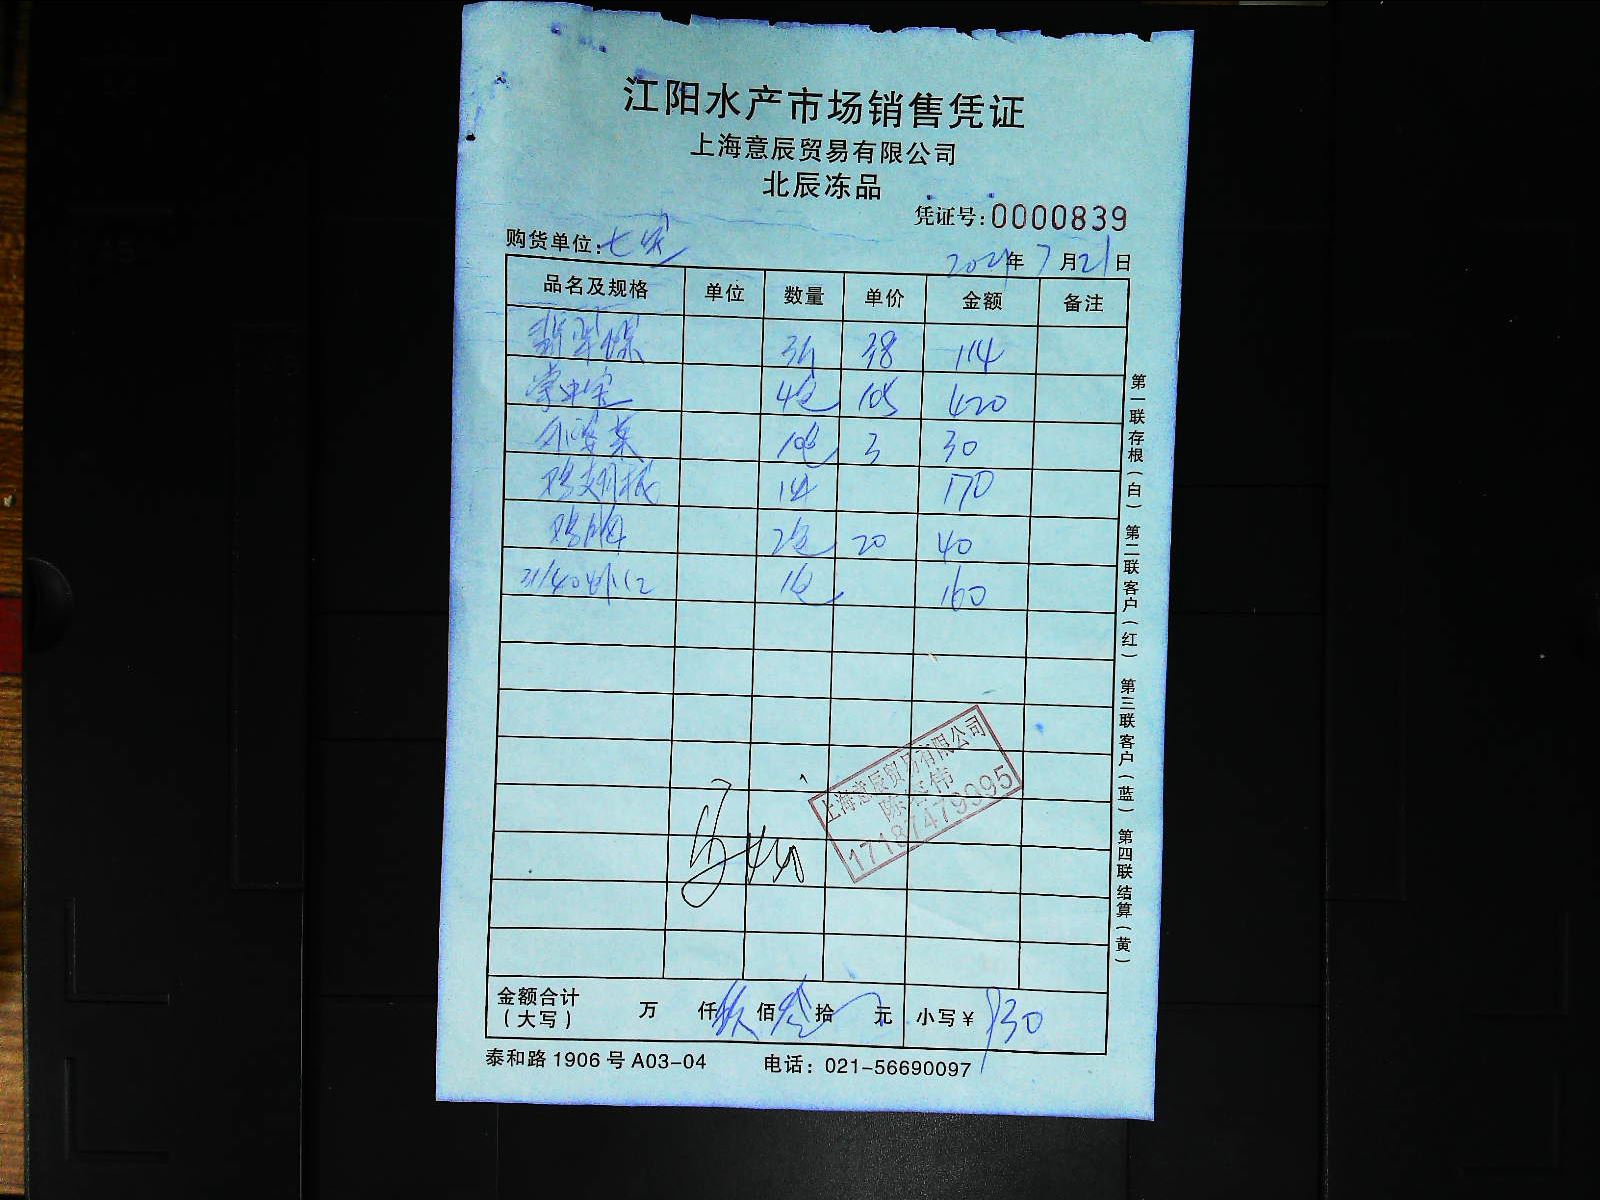 江阳水产市场销售凭证
上海意辰贸易有限公司
北辰冻品
凭证号:0000839
购货单位:七
2021年7月21日
品名及规格 单位 数量 单价 金额 备注
翡翠螺 3斤 38 114
4包 105 420
10包 3 30
鸡翅根 1件 170
鸡胸 2包 20 40
31/40虾仁 1包 160
上海意辰贸易有限公司
17187479995
金额合计(大写) 万 仟玖佰叁拾 元 小写¥930
泰和路1906号A03-04 电话:021-56690097
第一联存根(白) 第二联客户(红) 第三联客户(蓝) 第四联结算(黄)